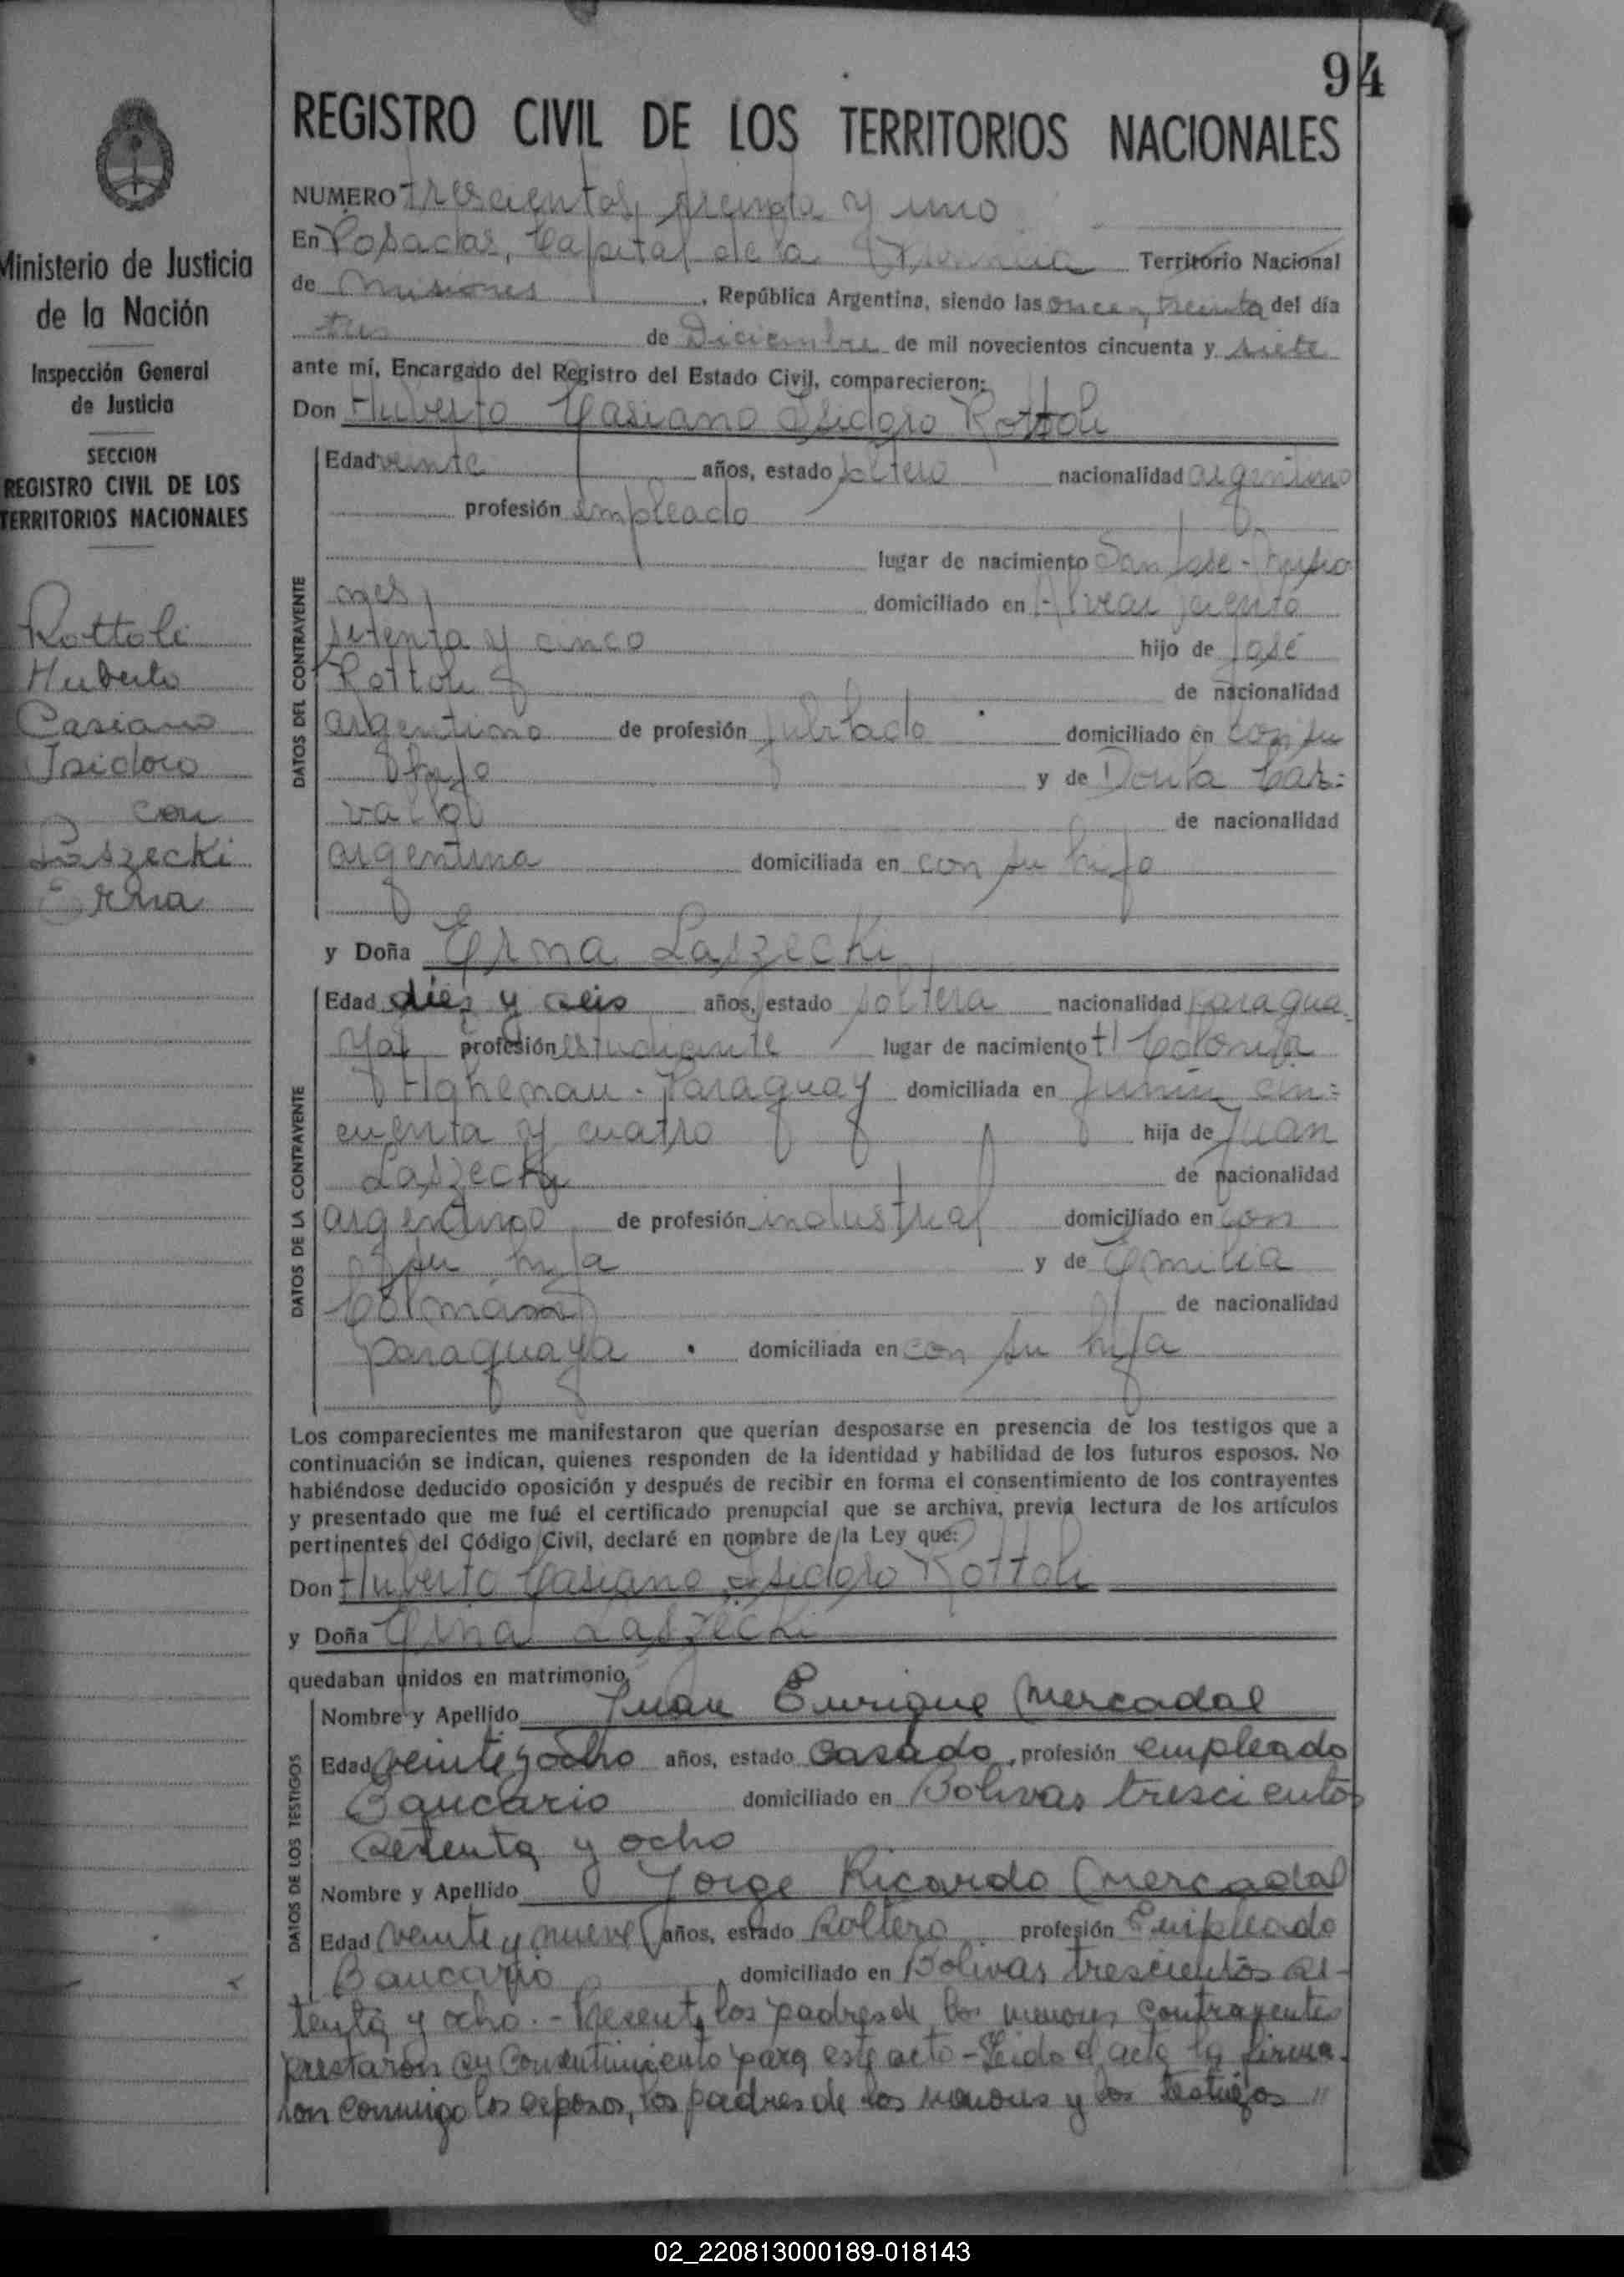 94
REGISTRO CIVIL DE LOS TERRITORIOS NACIONALES
Ministerio de Justicia
de la Nación
Inspección General
de Justicia
SECCION
REGISTRO CIVIL DE LOS
TERRITORIOS NACIONALES
Rottoli
Huberto
Casiano
Isidoro
con
Laszecki
Erna
NUMERO trescientos treinta y uno
En Posadas, Capital de la Provincia Territorio Nacional
de Misiones, República Argentina, siendo las once y treinta del día
tres de Diciembre de mil novecientos cincuenta y siete
ante mí, Encargado del Registro del Estado Civil, comparecieron:
Don Huberto Casiano Isidoro Rottoli
DATOS DEL CONTRAYENTE
Edad veinte años, estado soltero nacionalidad argentino
profesión empleado
lugar de nacimiento San José - Misio
nes domiciliado en Alvear
setenta y cinco hijo de José
Rottoli de nacionalidad
argentino de profesión jubilado domiciliado en con su
hijo y de Car=
vallo de nacionalidad
argentina domiciliada en con su hijo
y Doña Erna Laszecki
DATOS DE LA CONTRAYENTE
Edad diez y seis años, estado soltera nacionalidad paragua
ya profesión estudiante lugar de nacimiento Colonia
Hohenau - Paraguay domiciliada en Junín cin=
cuenta y cuatro hija de Juan
Laszecki de nacionalidad
argentino de profesión industrial domiciliado en con
su hija y de Emilia
Colmán de nacionalidad
paraguaya domiciliada en con su hija
Los comparecientes me manifestaron que querían desposarse en presencia de los testigos que a
continuación se indican, quienes responden de la identidad y habilidad de los futuros esposos. No
habiéndose deducido oposición y después de recibir en forma el consentimiento de los contrayentes
y presentado que me fué el certificado prenupcial que se archiva, previa lectura de los artículos
pertinentes del Código Civil, declaré en nombre de la Ley que:
Don Huberto Casiano Isidoro Rottoli
y Doña Erna Laszecki
quedaban unidos en matrimonio
DATOS DE LOS TESTIGOS
Nombre y Apellido Juan Enrique Mercadal
Edad veinte y ocho años, estado casado, profesión empleado
Bancario domiciliado en Bolivar trescientos
setenta y ocho
Nombre y Apellido Jorge Ricardo Mercadal
Edad veinte y nueve años, estado soltero profesión Empleado
Bancario domiciliado en Bolivar trescientos se-
tenta y ocho. - Presente los padres de los menores contrayentes
prestaron su consentimiento para este acto - Leido el acta la firma-
ron conmigo los esposos, los padres de los menores y los testigos
02_220813000189-018143